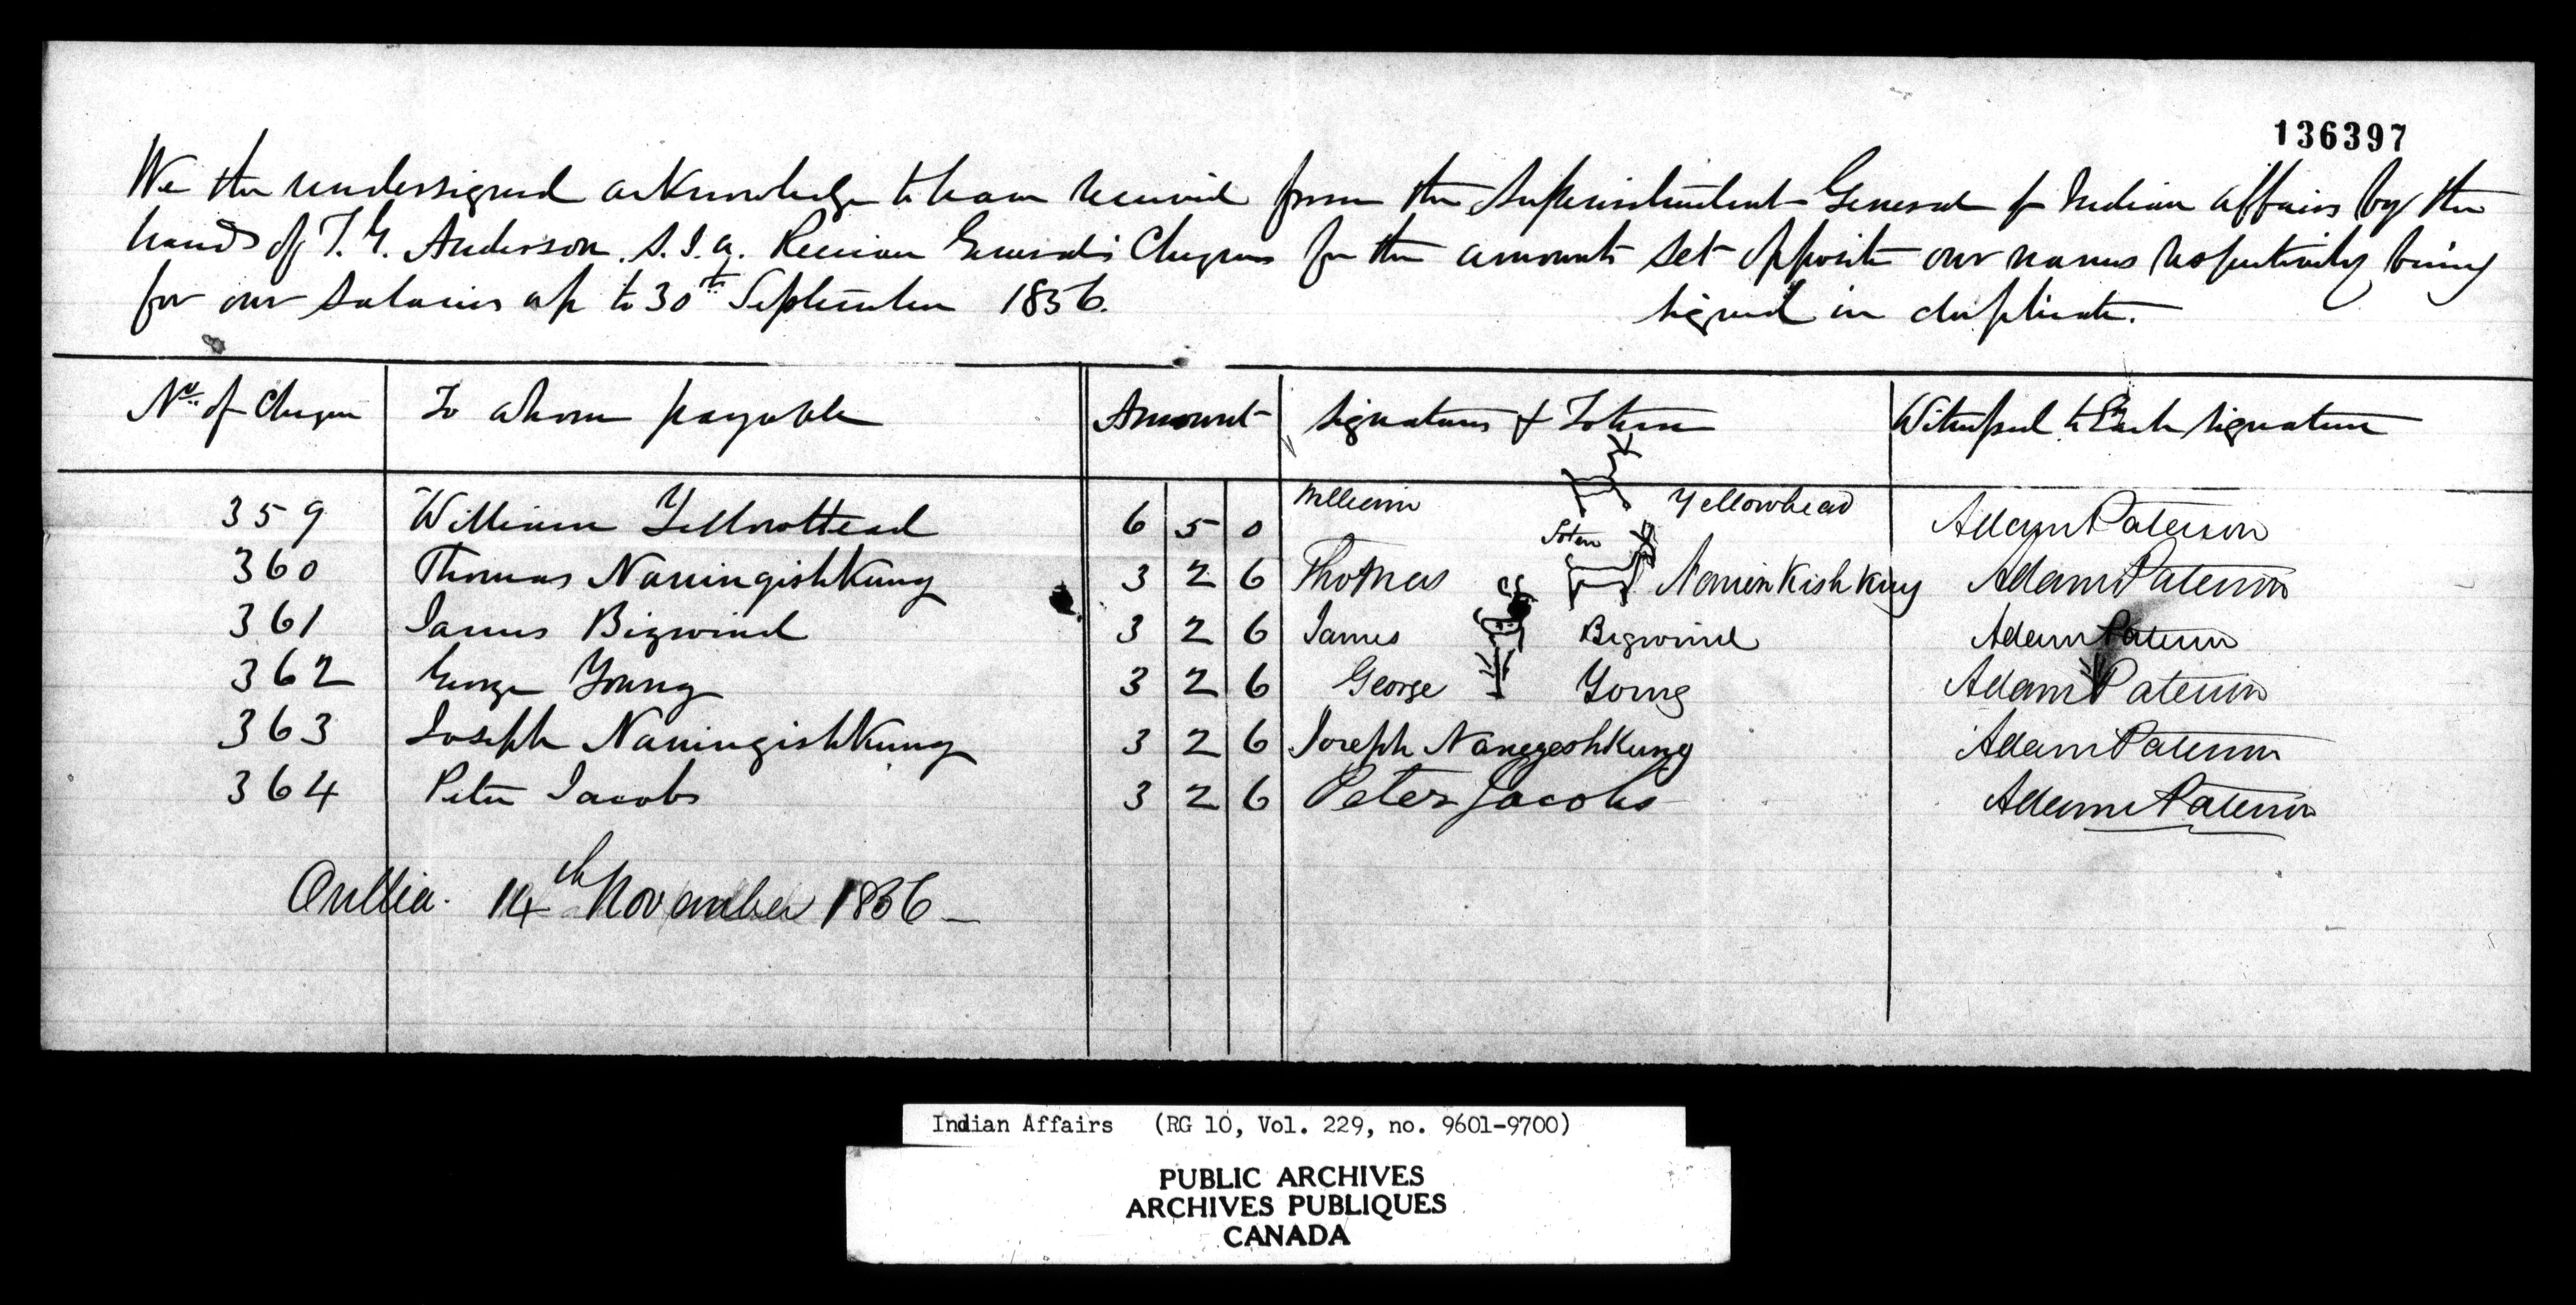 136397
We the undersigned acknowledge to have received from the Superintendent General of Indian affairs by the
hands of T. G. Anderson. S. I. A. Receiver General's Cheques for the amounts set opposite our names respectively being
for our Salaries up to 30th September 1856.
signed in duplicate.
No. of Cheque To whom payable Amount Signatures & Totem Witnessed to Each signature
359 William YellowHead 6 5 0 William Yellowhead Adam Paterson
Totem
360 Thomas NaningishKung 3 2 6 Thomas NaninKishKung Adam Paterson
361 James Bigwind 3 2 6 James Bigwind Adam Paterson
362 George Young 3 2 6 George Yong Adam Paterson
363 Joseph NaningishKung 3 2 6 Joseph NanegeshKung Adam Paterson
364 Peter Jacobs 3 2 6 Peter Jacobs Adam Paterson
Orillia. 14th November 1856
Indian Affairs (RG 10, Vol. 229, no. 9601-9700)
PUBLIC ARCHIVES
ARCHIVES PUBLIQUES
CANADA